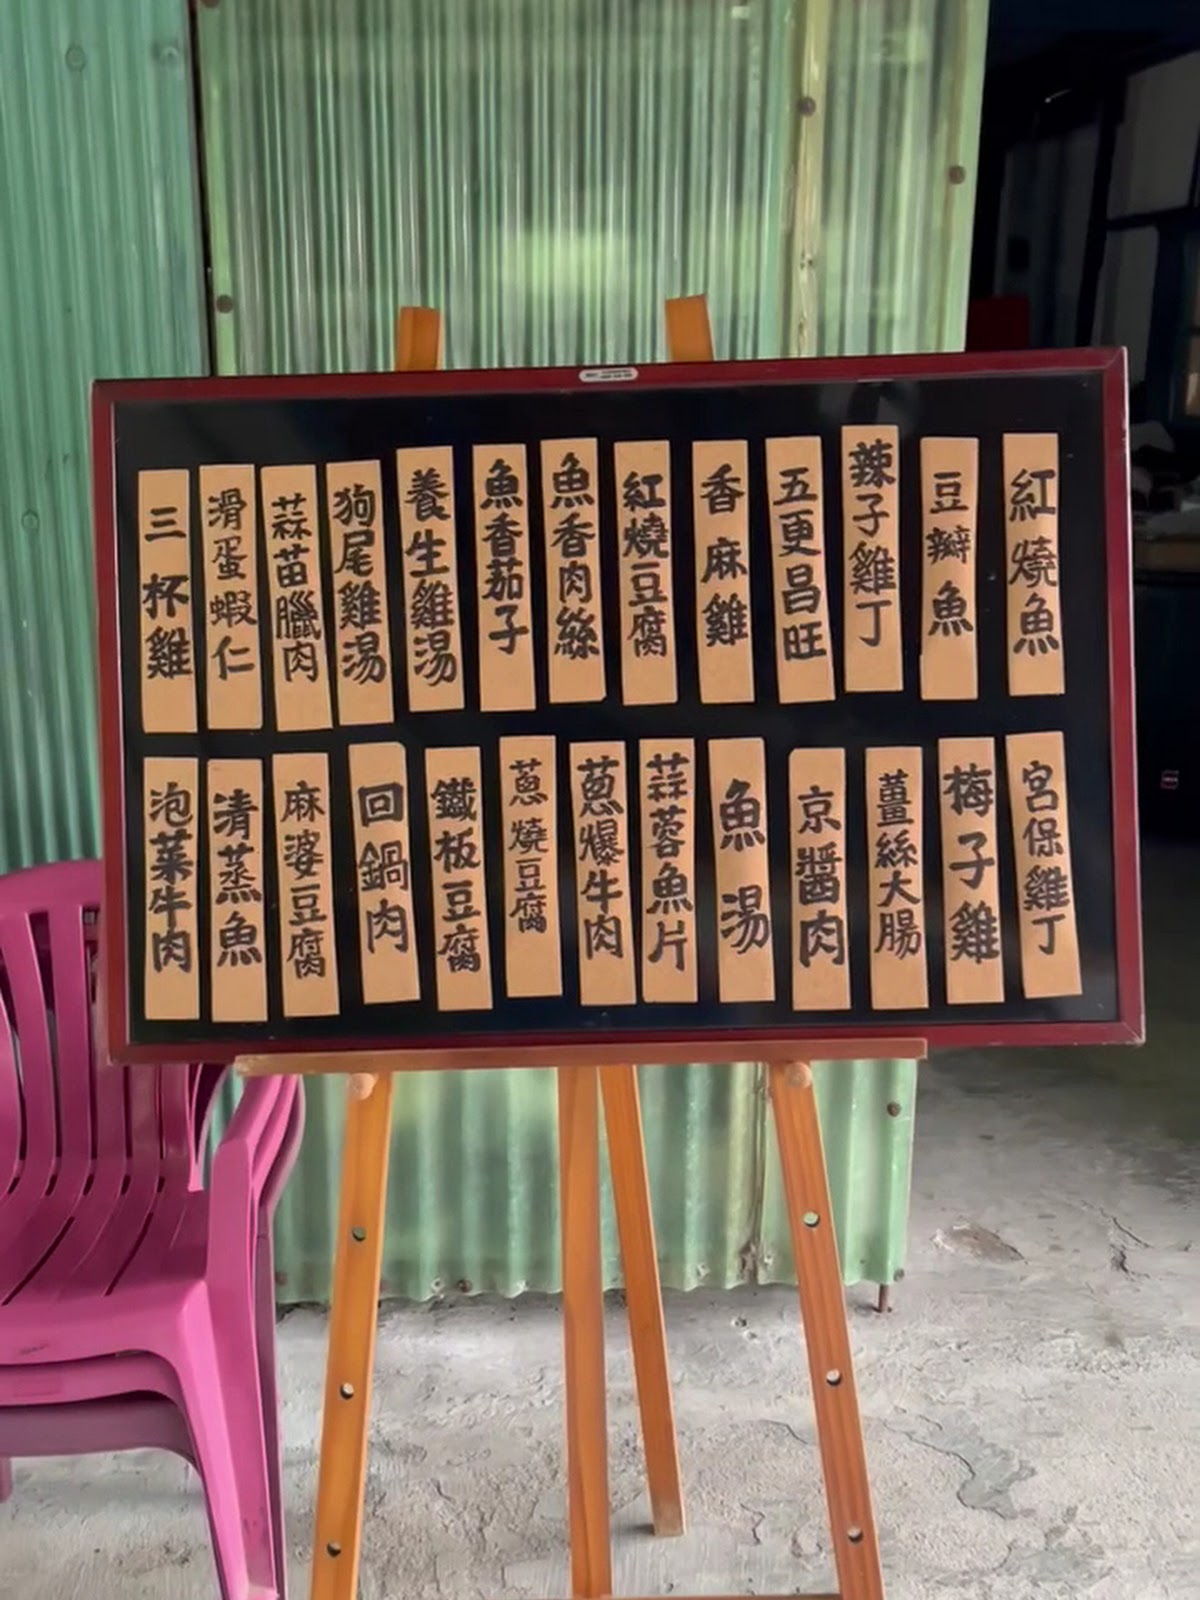 紅燒魚
豆瓣魚
辣子雞丁
五更昌旺
香麻雞
紅燒豆腐
魚香肉絲
魚香茄子
養生雞湯
狗尾雞湯
蒜苗臘肉
滑蛋蝦仁
三杯雞
宮保雞丁
梅子雞
薑絲大腸
京醬肉
魚湯
蒜蓉魚片
蔥爆牛肉
蔥燒豆腐
鐵板豆腐
回鍋肉
麻婆豆腐
清蒸魚
泡菜牛肉